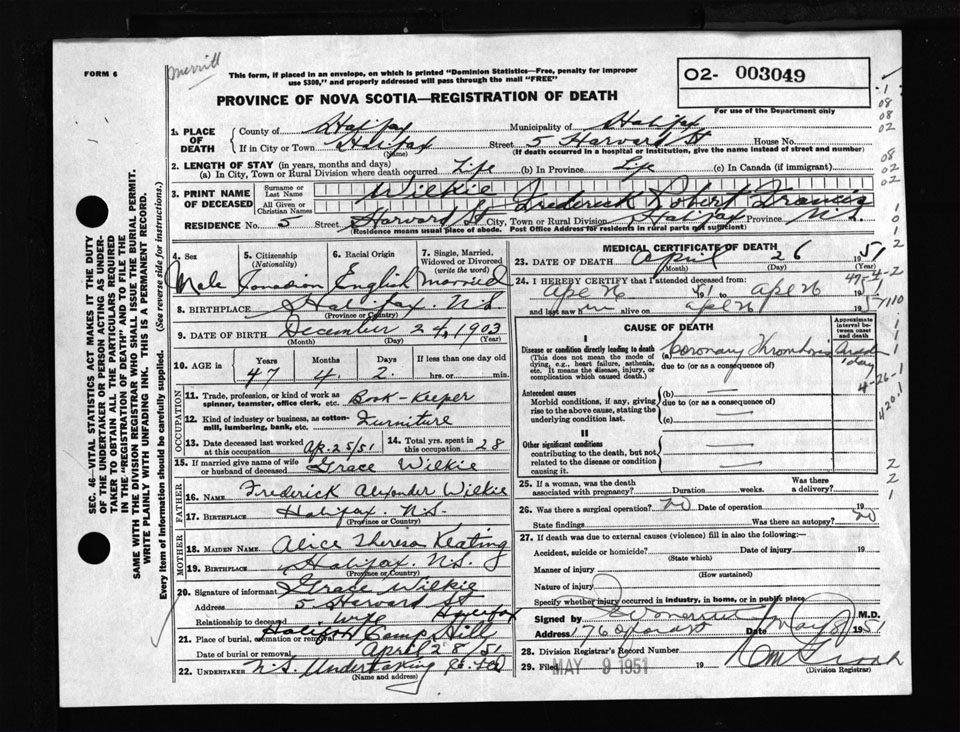 FORM 6
Merrill
This form, if placed in an envelope, on which is printed "Dominion Statistics—Free, penalty for improper
use $300," and properly addressed will pass through the mail "FREE"
O2- 003049
For use of the Department only
PROVINCE OF NOVA SCOTIA—REGISTRATION OF DEATH
1. PLACE OF DEATH
County of Halifax Municipality of Halifax
If in City or Town Halifax Street 5 Harvard St House No.
(Name) (If death occurred in a hospital or institution, give the name instead of street and number)
2. LENGTH OF STAY (in years, months and days)
(a) In City, Town or Rural Division where death occurred Life (b) In Province Life (c) In Canada (if immigrant)
3. PRINT NAME OF DECEASED
Surname or Last Name Wilkie
All Given or Christian Names Frederick Robert Francis
RESIDENCE No. 5 Street Harvard St City, Town or Rural Division Halifax Province N.S.
(Residence means usual place of abode. Post Office Address for residents in rural parts not sufficient)
4. Sex Male
5. Citizenship (Nationality) Canadian
6. Racial Origin English
7. Single, Married, Widowed or Divorced (write the word) Married
8. BIRTHPLACE Halifax. N.S
(Province or Country)
9. DATE OF BIRTH December 24, 1903
(Month) (Day) (Year)
10. AGE in Years 47 Months 4 Days 2. If less than one day old
hrs. or min.
OCCUPATION
11. Trade, profession, or kind of work as spinner, teamster, office clerk, etc. Book-Keeper
12. Kind of industry or business, as cotton-mill, lumbering, bank, etc. Furniture
13. Date deceased last worked at this occupation Ap. 25/51
14. Total yrs. spent in this occupation 28
15. If married give name of wife or husband of deceased Grace Wilkie
FATHER
16. Name Frederick Alexander Wilkie
17. BIRTHPLACE Halifax. N.S.
(Province or Country)
MOTHER
18. MAIDEN NAME Alice Theresa Keating
19. BIRTHPLACE Halifax. N.S.
(Province or Country)
20. Signature of informant Grace Wilkie
Address 5 Harvard St
Relationship to deceased wife Halifax
21. Place of burial, cremation or removal Halifax Camp Hill
Date of burial or removal April 28/51
22. UNDERTAKER N.S. Undertaking Co. Ltd
(Name and address)
MEDICAL CERTIFICATE OF DEATH
23. DATE OF DEATH April 26 195
(Month) (Day) (Year)
24. I HEREBY CERTIFY that I attended deceased from:
Ape 26 51 to Ape 26
and last saw him alive on Ape 26
CAUSE OF DEATH
Approximate interval between onset and death
I
Disease or condition directly leading to death
(This does not mean the mode of dying, e.g., heart failure, asthenia, etc. It means the disease, injury, or complication which caused death.)
(a) Coronary Thrombosis
due to (or as a consequence of)
day
Antecedent causes
Morbid conditions, if any, giving rise to the above cause, stating the underlying condition last.
(b)
due to (or as a consequence of)
(c)
II
Other significant conditions
contributing to the death, but not related to the disease or condition causing it.
25. If a woman, was the death associated with pregnancy? Duration weeks. Was there a delivery?
26. Was there a surgical operation? No Date of operation 19
State findings Was there an autopsy? No
27. If death was due to external causes (violence) fill in also the following:—
Accident, suicide or homicide? Date of injury 19
(State which)
Manner of injury
(How sustained)
Nature of injury
Specify whether injury occurred in industry, in home, or in public place
Signed by M.D.
Address Date May 8 1951
28. Division Registrar's Record Number
29. Filed MAY 9 1951 19
(Division Registrar)
SEC. 46—VITAL STATISTICS ACT MAKES IT THE DUTY
OF THE UNDERTAKER OR PERSON ACTING AS UNDER-
TAKER TO OBTAIN ALL THE PARTICULARS REQUIRED
IN THE "REGISTRATION OF DEATH" AND TO FILE THE
SAME WITH THE DIVISION REGISTRAR WHO SHALL ISSUE THE BURIAL PERMIT.
WRITE PLAINLY WITH UNFADING INK. THIS IS A PERMANENT RECORD.
Every item of information should be carefully supplied. (See reverse side for instructions.)